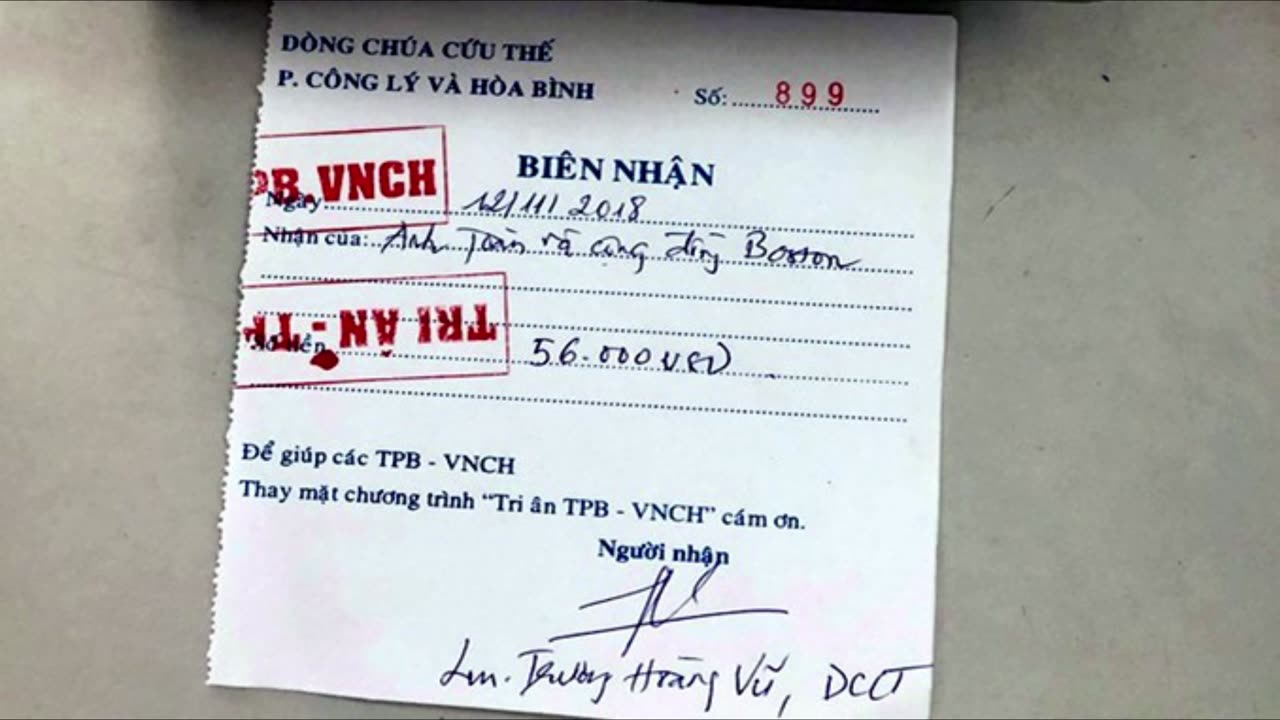 DÒNG CHÚA CỨU THẾ
P. CÔNG LÝ VÀ HÒA BÌNH
Số: 899
BIÊN NHẬN
PB.VNCH
Ngày 12/11/2018
Nhận của: Anh Toàn và cộng đồng Boston
TRI ÂN - TP
Số tiền 56.000 USD
Để giúp các TPB - VNCH
Thay mặt chương trình “Tri ân TPB - VNCH” cám ơn.
Người nhận
Lm. Trương Hoàng Vũ, DCCT